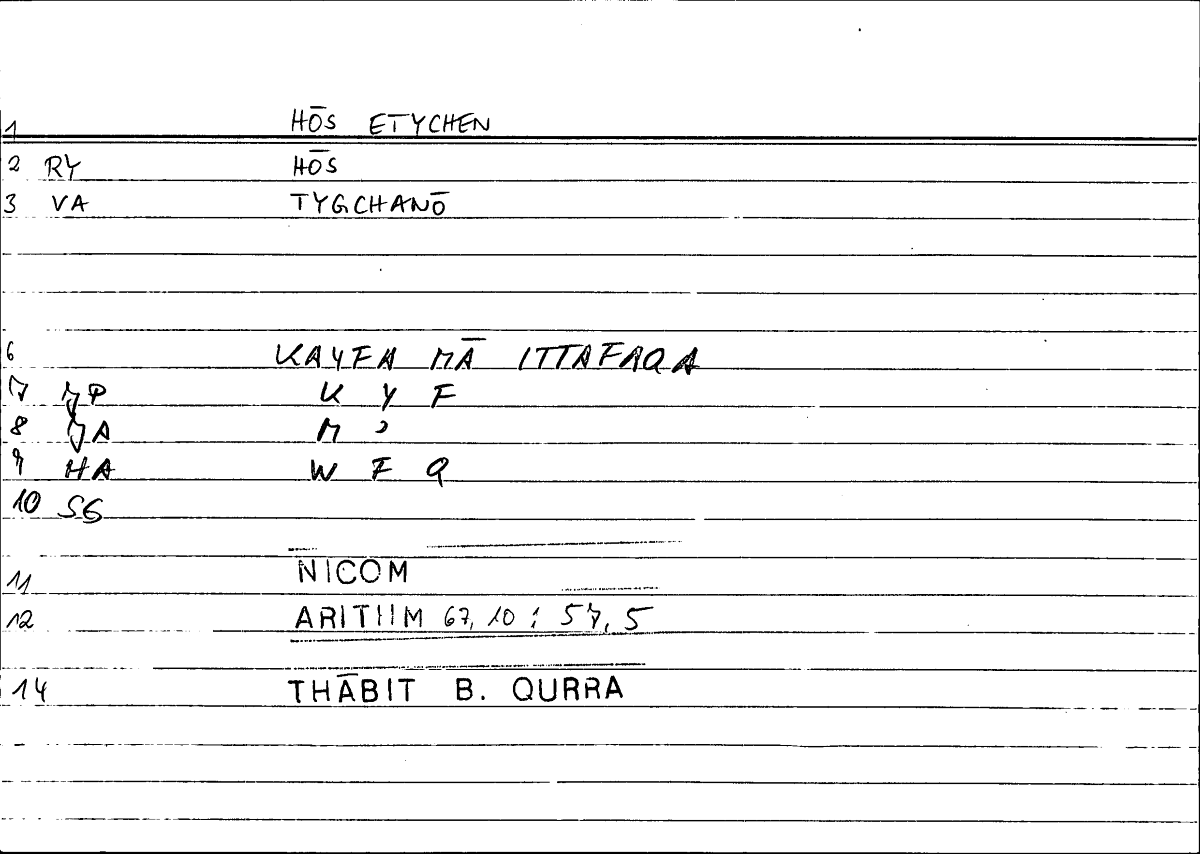 1 HŌS ETYCHEN
2 RY HŌS
3 VA TYGCHANŌ
6 KAYFA MĀ ITTAFAQA
7 K Y F
8 M ʾ
9 HA W F Q
10 SG
11 NICOM
12 ARITHM 67, 10 ; 57, 5
14 THĀBIT B. QURRA